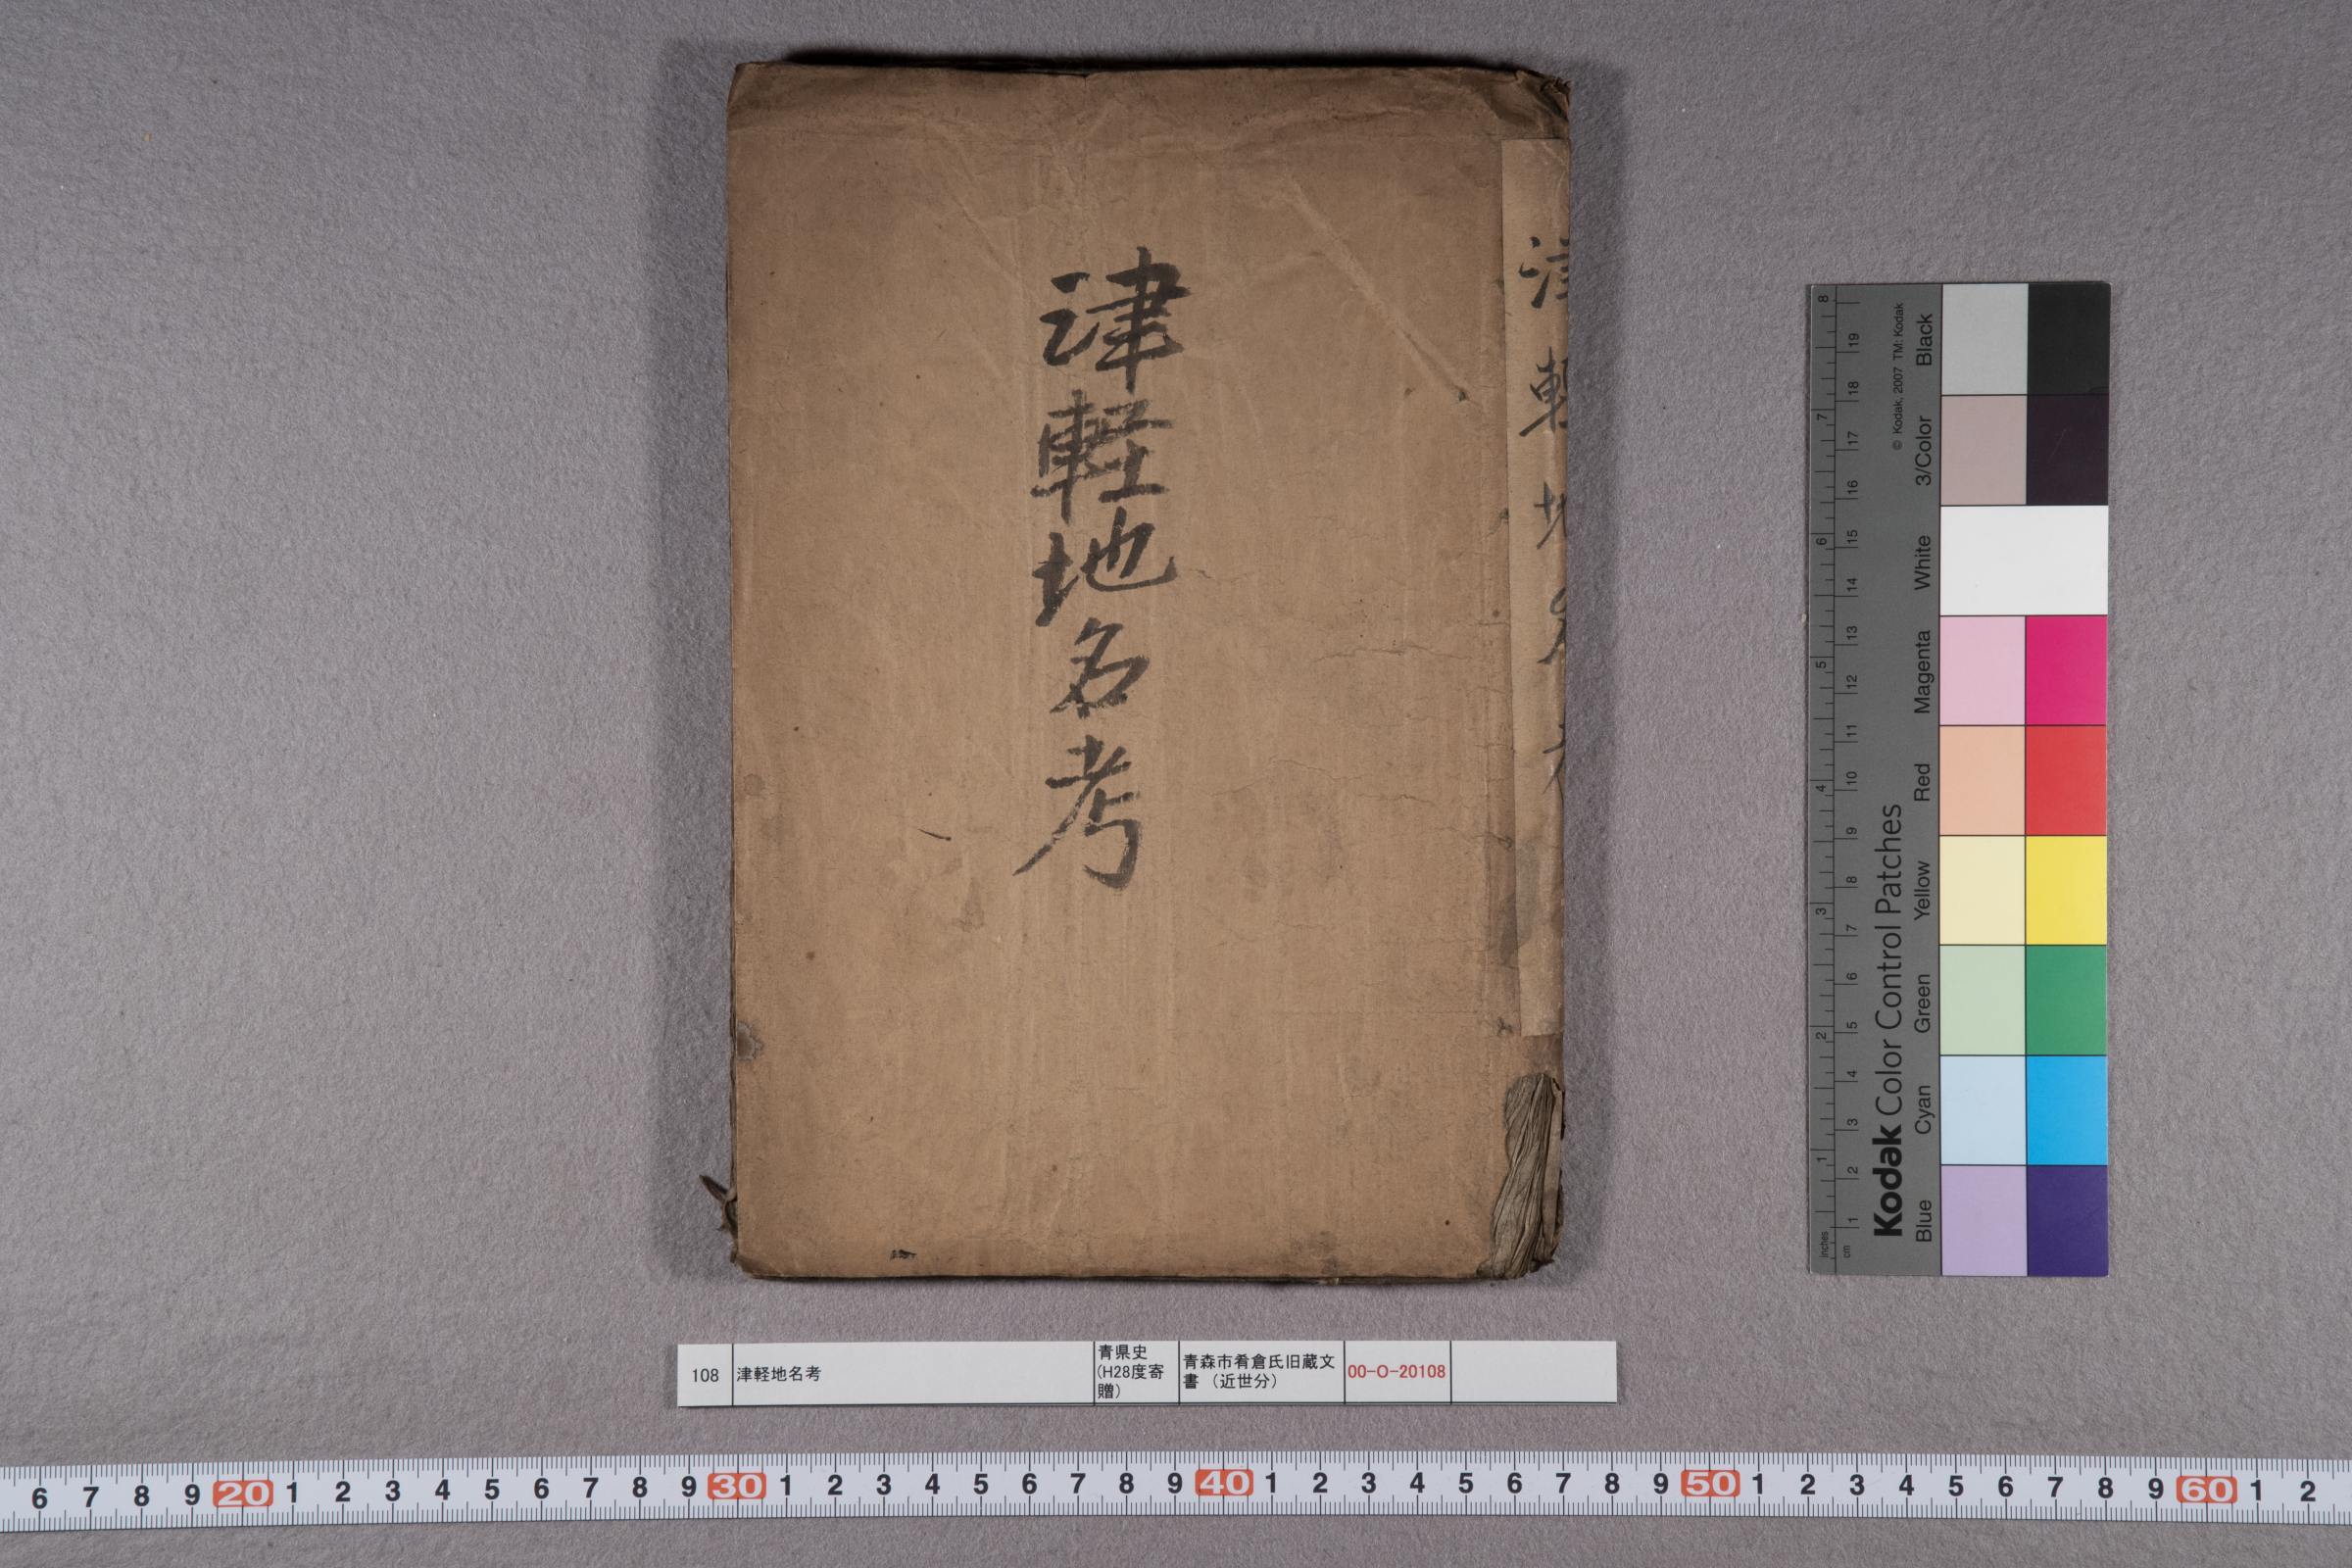 津軽地名考
津軽地名考
108 津軽地名考 青県史(H28度寄贈) 青森市肴倉氏旧蔵文書（近世分） 00-O-20108
Kodak Color Control Patches
© Kodak, 2007 TM: Kodak
Blue Cyan Green Yellow Red Magenta White 3/Color Black
inches 1 2 3 4 5 6 7 8
cm 1 2 3 4 5 6 7 8 9 10 11 12 13 14 15 16 17 18 19
6 7 8 9 20 1 2 3 4 5 6 7 8 9 30 1 2 3 4 5 6 7 8 9 40 1 2 3 4 5 6 7 8 9 50 1 2 3 4 5 6 7 8 9 60 1 2